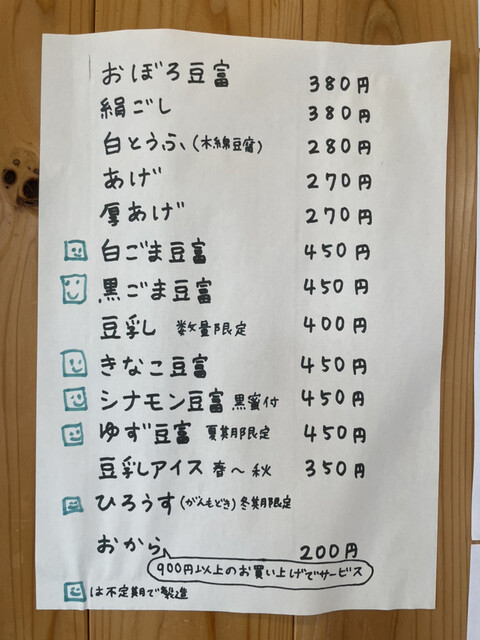 おぼろ豆富 380円
絹ごし 380円
白とうふ、(木綿豆腐) 280円
あげ 270円
厚あげ 270円
白ごま豆富 450円
黒ごま豆富 450円
豆乳 数量限定 400円
きなこ豆富 450円
シナモン豆富 黒蜜付 450円
ゆず豆富 夏期限定 450円
豆乳アイス 春〜秋 350円
ひろうす(がんもどき)冬期限定
おから 200円
900円以上のお買い上げでサービス
は不定期で製造